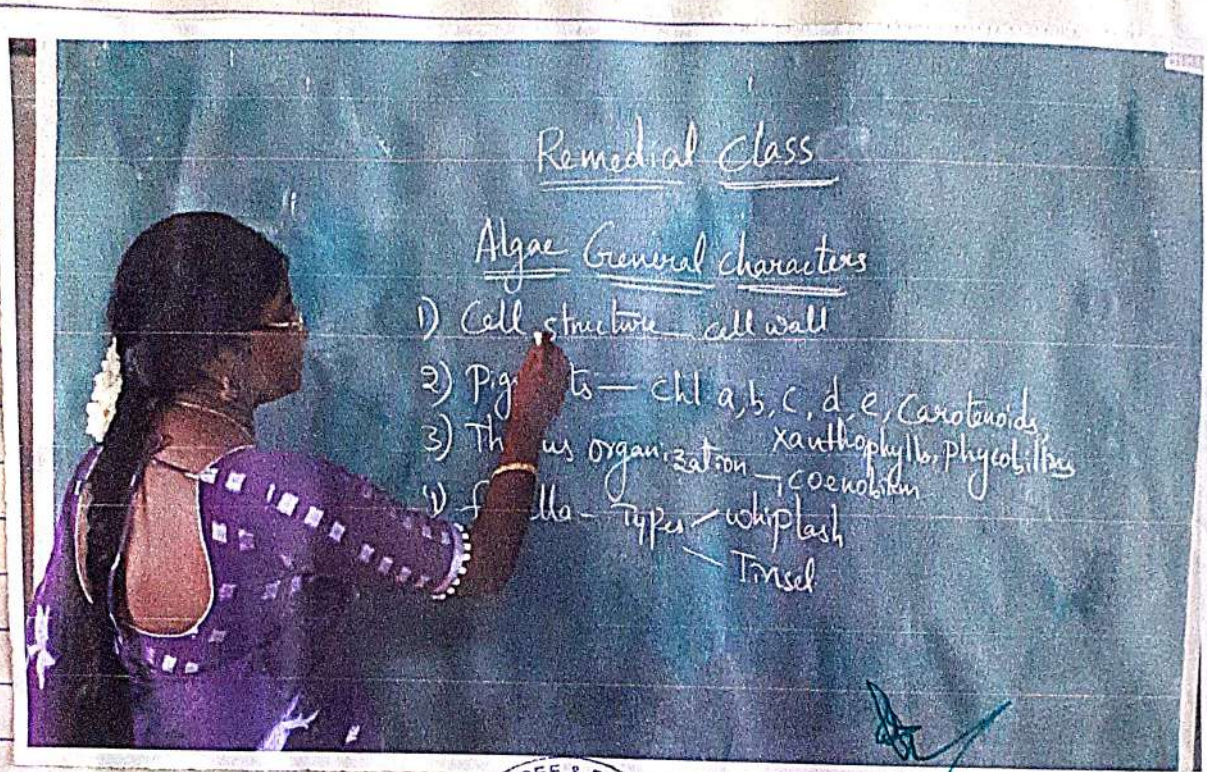 Remedial Class
Algae General characters
1) Cell structure cell wall
2) Pig ts — Chl a, b, c, d, e, Carotenoids,
Xanthophylls, Phycobilins
3) Th us organization → coenobium
4) f lla - Types whiplash
Tinsel